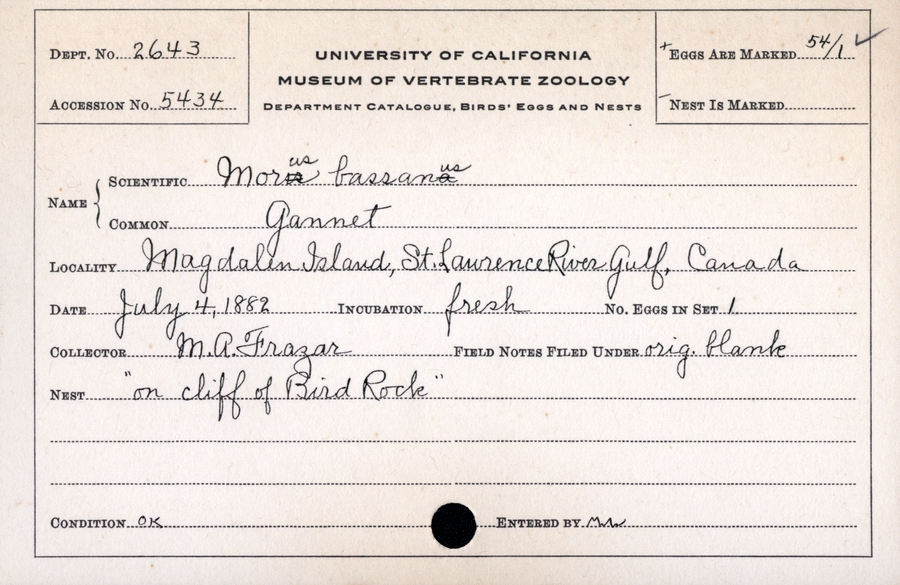 DEPT. NO. 2643
ACCESSION NO. 5434
UNIVERSITY OF CALIFORNIA
MUSEUM OF VERTEBRATE ZOOLOGY
DEPARTMENT CATALOGUE, BIRDS' EGGS AND NESTS
+ EGGS ARE MARKED 54/1 ✓
- NEST IS MARKED
NAME
SCIENTIFIC Morus bassanus
COMMON Gannet
LOCALITY Magdalen Island, St. Lawrence River Gulf, Canada
DATE July 4, 1882 INCUBATION fresh NO. EGGS IN SET 1
COLLECTOR M.A. Frazar FIELD NOTES FILED UNDER orig. blank
NEST "on cliff of Bird Rock"
CONDITION OK ENTERED BY